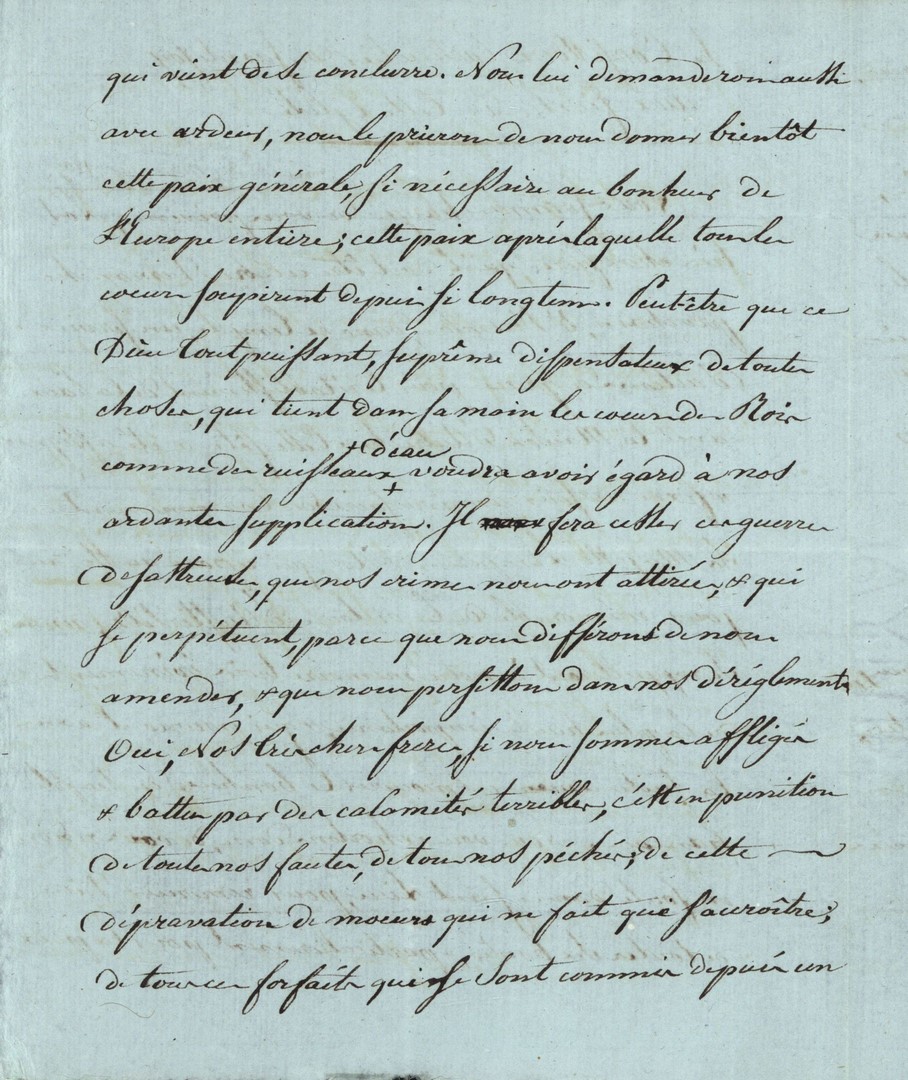 qui vient de se conclurre. Nous lui demanderons aussi
avec ardeur, nous le prierons de nous donner bientôt
cette paix générale, si nécessaire au bonheur de
l'Europe entiere; cette paix après laquelle tous les
coeurs soupirent depuis si longtems. Peut-être que ce
Dieu tout puissant, suprême dispensateur de toutes
choses, qui tient dans sa main les coeurs des Rois
+ d'eau
comme des ruisseaux + voudra avoir égard à nos
ardantes supplications. Il fera cesser ces guerres
desastreuses, que nos crimes nous ont attirées, & qui
se perpétuent, parce que nous différons de nous
amender, & que nous persistons dans nos déréglements
Oui, Nos très chers freres, si nous sommes affligés
& battus par des calamités terribles, c'est en punition
de toutes nos fautes, de tous nos péchés; de cette
dépravation de moeurs qui ne fait que s'acroître;
de tous ces forfaits qui se sont commis depuis un